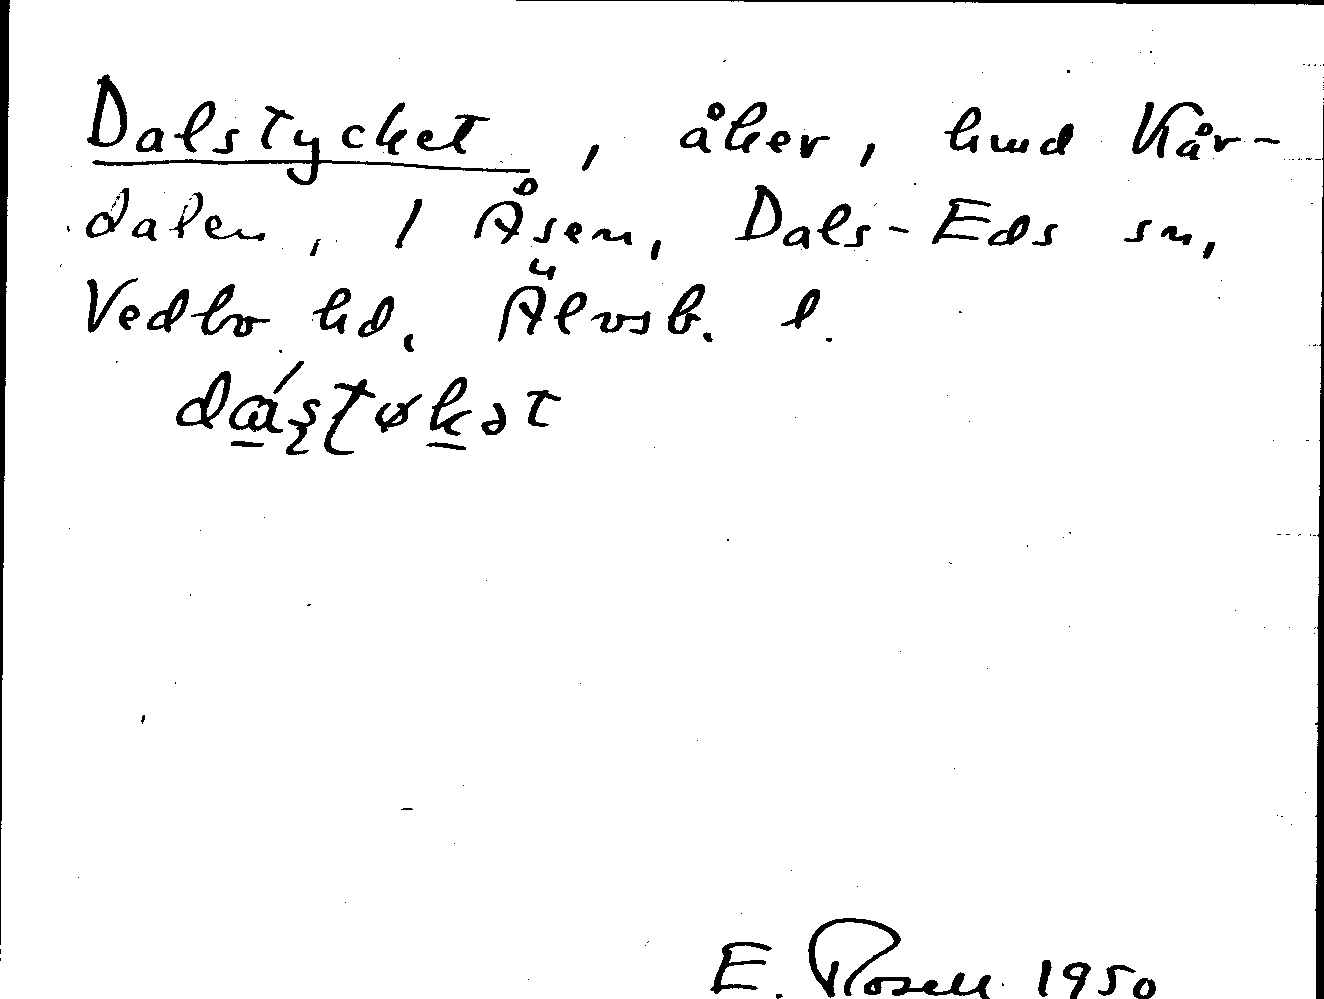 Dalstycket, åker, hmd Kår-
dalen, 1 Åsen, Dals-Eds sn,
Vedbo hd. Älvsb. l.
dáʂʈøkət
E. Rosell 1950